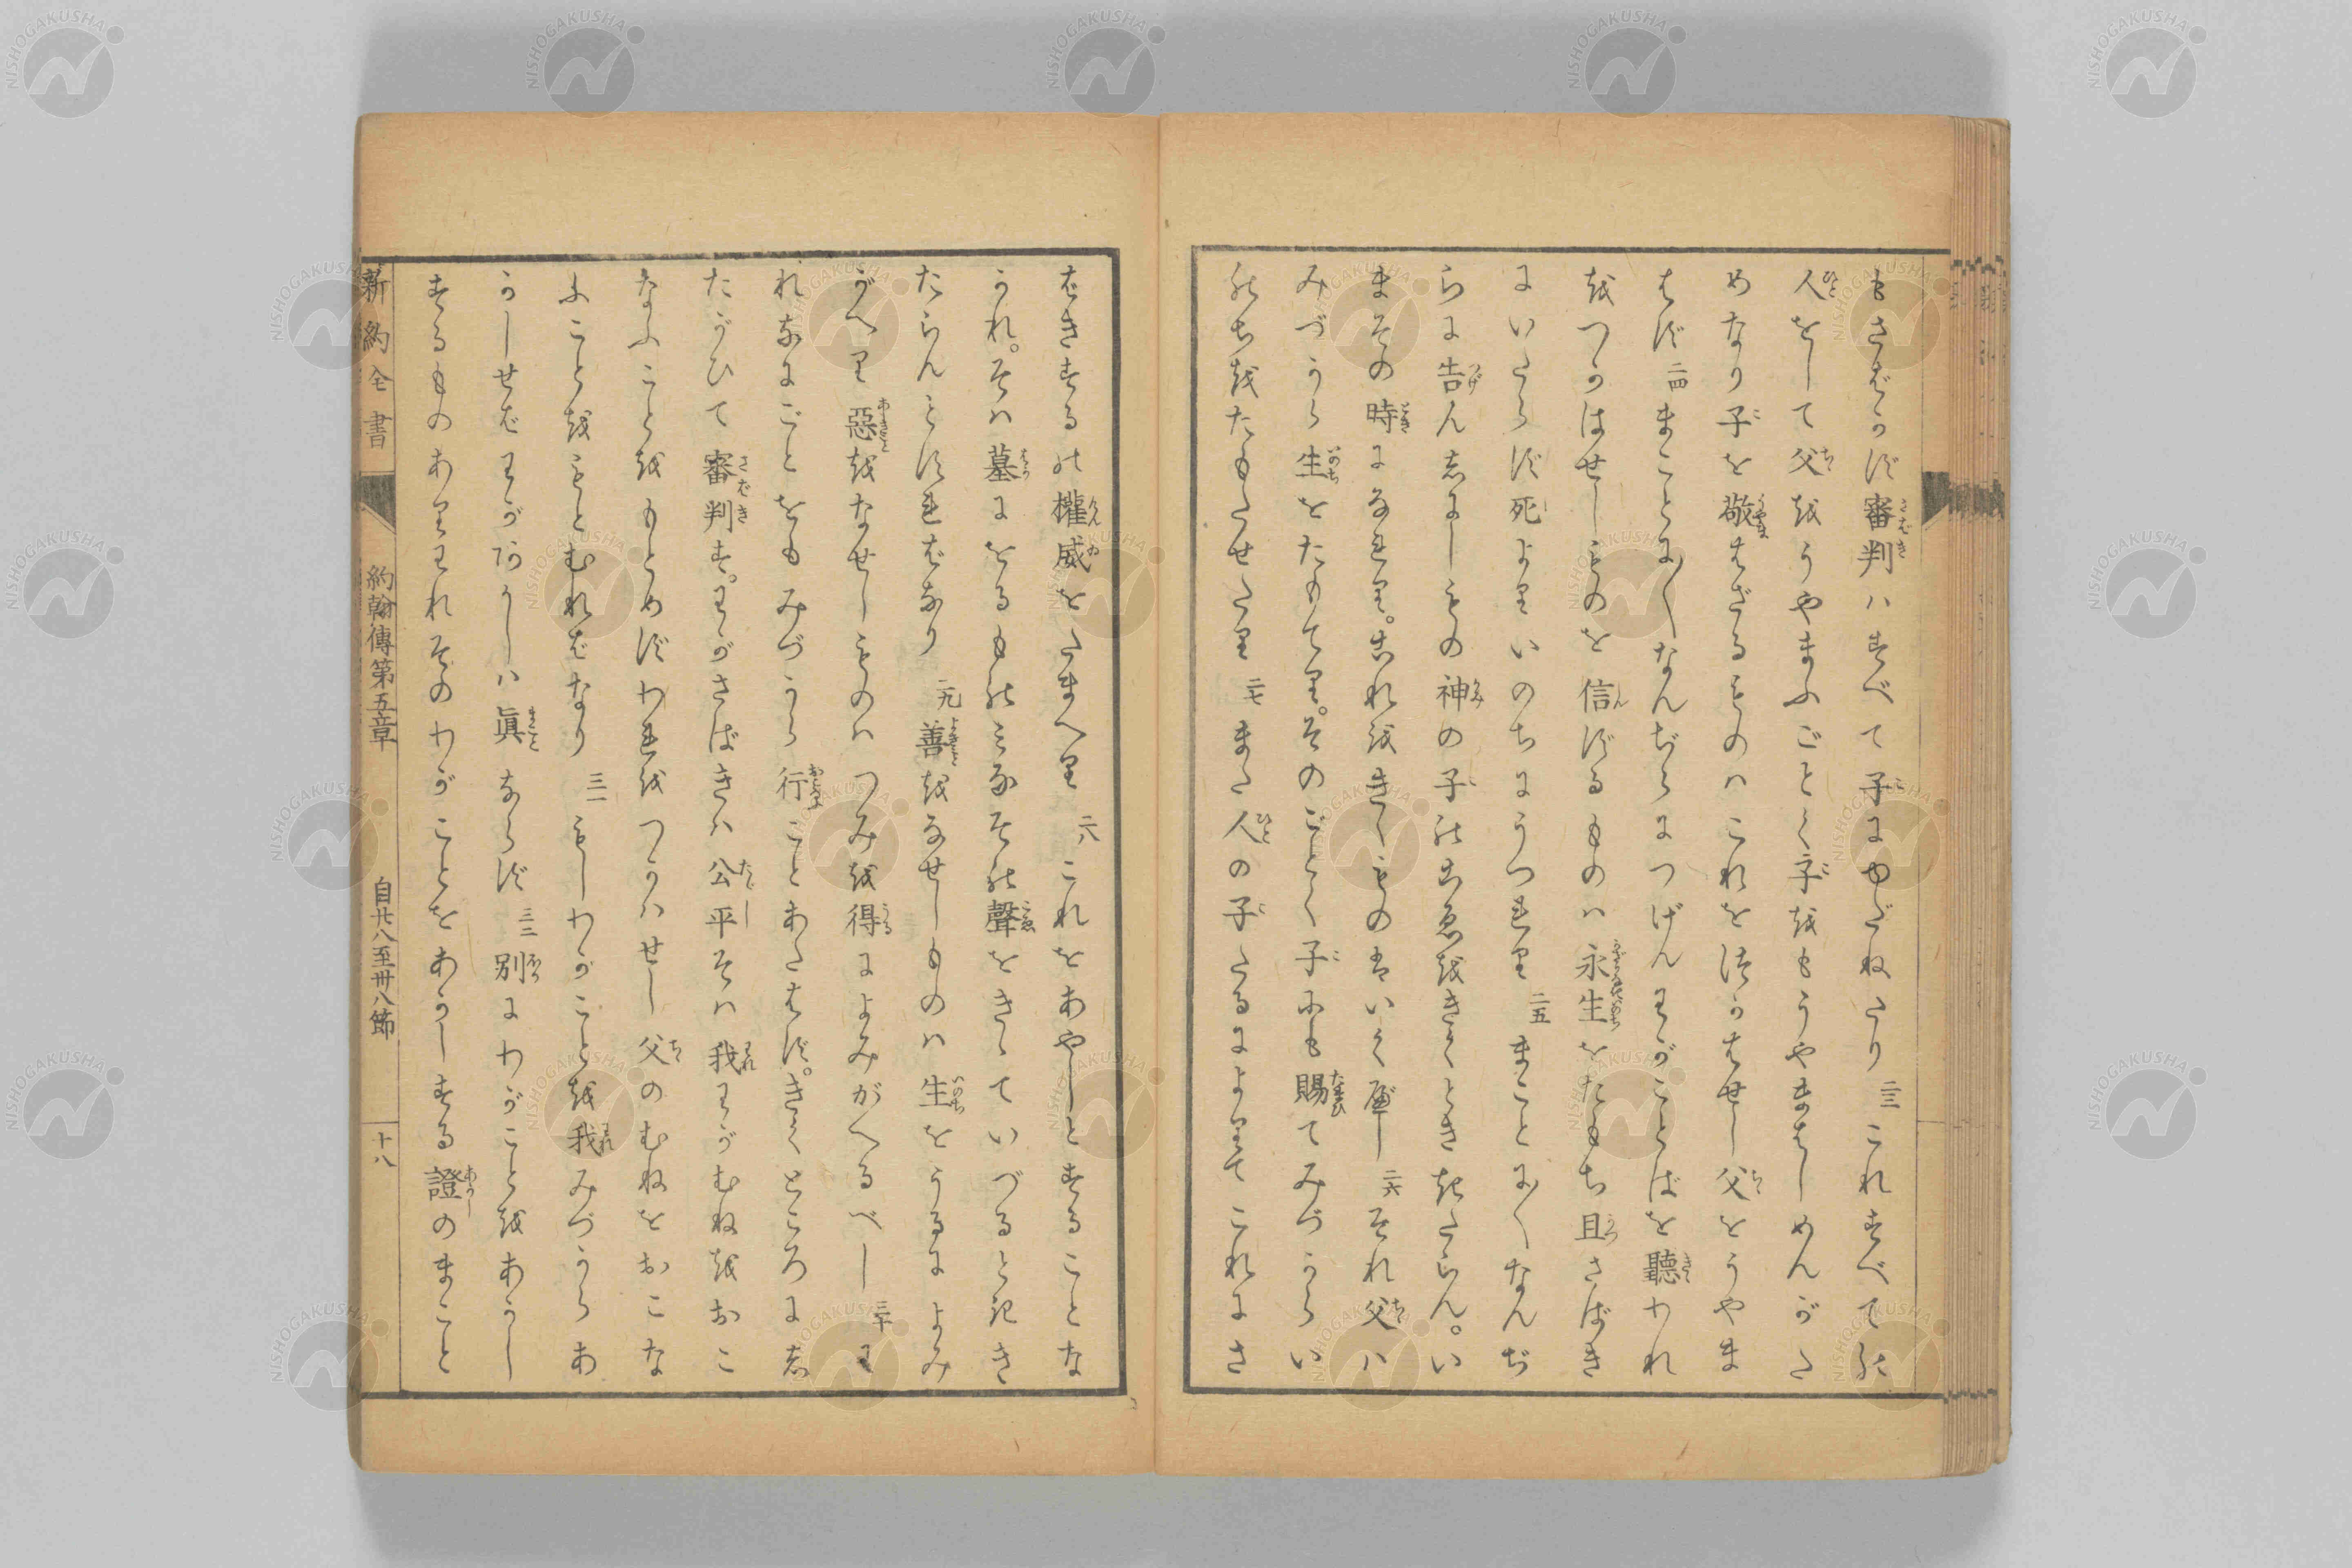 もさばかず審判ハすべて子にゆだねたり 二三 これすべての
人をして父をうやまふごとく子をもうやまはしめんがた
めなり子を敬はざるものハこれをつかはせし父をうやま
はず 二四 まことに〱なんぢらにつげんわがことばを聽われ
をつかはせしものを信ずるものハ永生をたもち且さばき
にいたらず死よりいのちにうつれり 二五 まことに〱なんぢ
らに告ん志にしものの神の子のこゑをきくとききたらん。い
まその時になれり。これをきくものはいく べし 二六 それ父ハ
みづから生をたもてり。そのごとく子にも賜てみづからい
のちをたもたせたり 二七 また人の子たるによりてこれにさ
ばきするの權威をたまへり 二八 これをあやしとすることな
かれ。そハ墓にをるものみなその聲をきゝていづるときき
たらんとすればなり 二九 善をなせしものハ生をうるによみ
がへり惡をなせしものハつみを得によみがへるべし 三十 わ
れなにごとをもみづから行ことあたはず。きくところに志
たがひて審判す。わがさばきハ公平そハ我わがむねをおこ
なふことをもとめずわれをつかハせし父のむねをおこな
ふことをもとむればなり 三一 もしわがことを我みづからあ
かしせばわがあかしハ眞ならず 三二 別にわがことをあかし
するものありわれそのわがことをあかしする證のまこと
新約全書 約翰傳第五章 自廿八至卅八節 十八
NISHOGAKUSHA